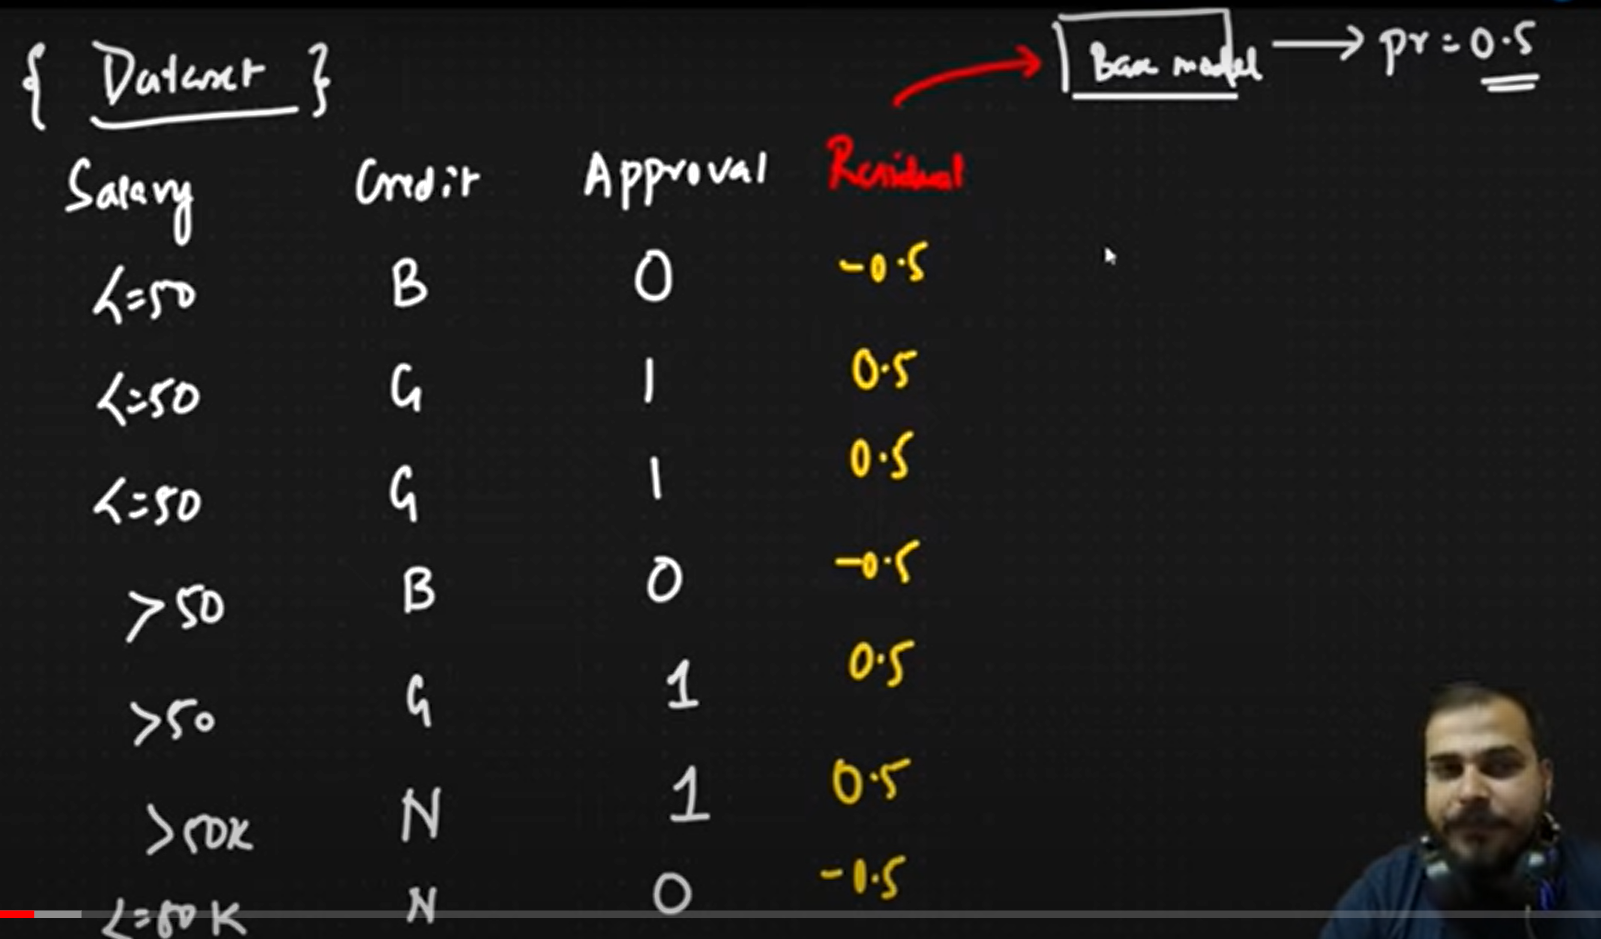 { Dataset } Base model → pr = 0.5
Salary Credit Approval Residual
<=50 B 0 -0.5
<=50 G 1 0.5
<=50 G 1 0.5
>50 B 0 -0.5
>50 G 1 0.5
>50K N 1 0.5
<=50K N 0 -0.5